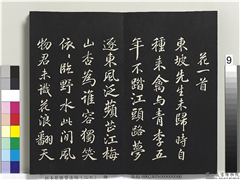 花一首
東坡先生未歸時自
種来禽与青李五
年不踏江頭路夢
逐東風泛蘋芷江梅
山杏為誰容獨笑
依臨野水此間風
物君未識花浪翻天
9